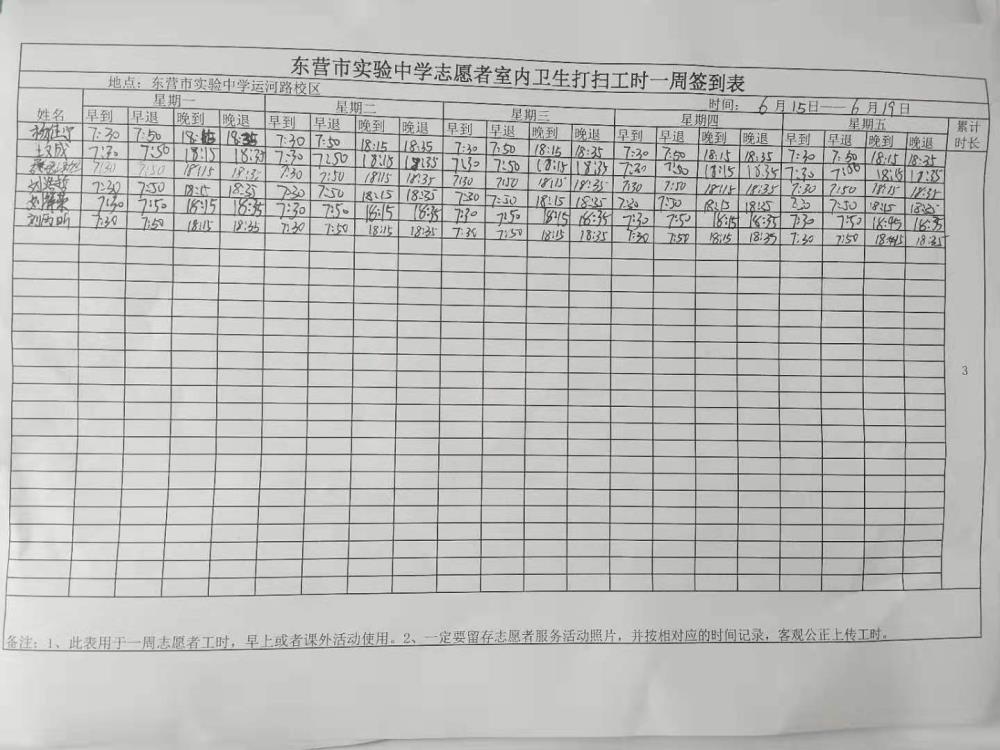 东营市实验中学志愿者室内卫生打扫工时一周签到表
地点：东营市实验中学运河路校区 时间： 6月15日——6月19日
姓名 星期一 星期二 星期三 星期四 星期五 累计时长
早到 早退 晚到 晚退 早到 早退 晚到 晚退 早到 早退 晚到 晚退 早到 早退 晚到 晚退 早到 早退 晚到 晚退
7:30 7:50 18:35 7:30 7:50 18:15 18:35 7:30 7:50 18:15 18:35 7:30 7:50 18:15 18:35 7:30 7:50 18:15 18:35
7:30 7:50 18:15 18:35 7:30 7:50 18:15 18:35 7:30 7:50 18:15 18:35 7:30 7:50 18:15 18:35 7:30 7:50 18:15 18:35
7:30 7:50 18:15 18:35 7:30 7:50 18:15 18:35 7:30 7:50 18:15 18:35 7:30 7:50 18:15 18:35 7:30 7:50 18:15 18:35
7:30 7:50 18:15 18:35 7:30 7:50 18:15 18:35 7:30 7:50 18:15 18:35 7:30 7:50 18:15 18:35 7:50 18:15 18:35
7:30 7:50 18:15 18:35 7:30 7:50 18:15 18:35 7:30 7:50 18:15 18:35 7:30 7:50 18:15 18:35 7:30 7:50 18:45 18:35
7:30 7:50 18:15 18:35 7:30 7:50 18:15 18:35 7:30 7:50 18:15 18:35 7:30 7:50 18:15 18:35 7:30 7:50 18:35
3
备注：1、此表用于一周志愿者工时，早上或者课外活动使用。2、一定要留存志愿者服务活动照片，并按相对应的时间记录，客观公正上传工时。